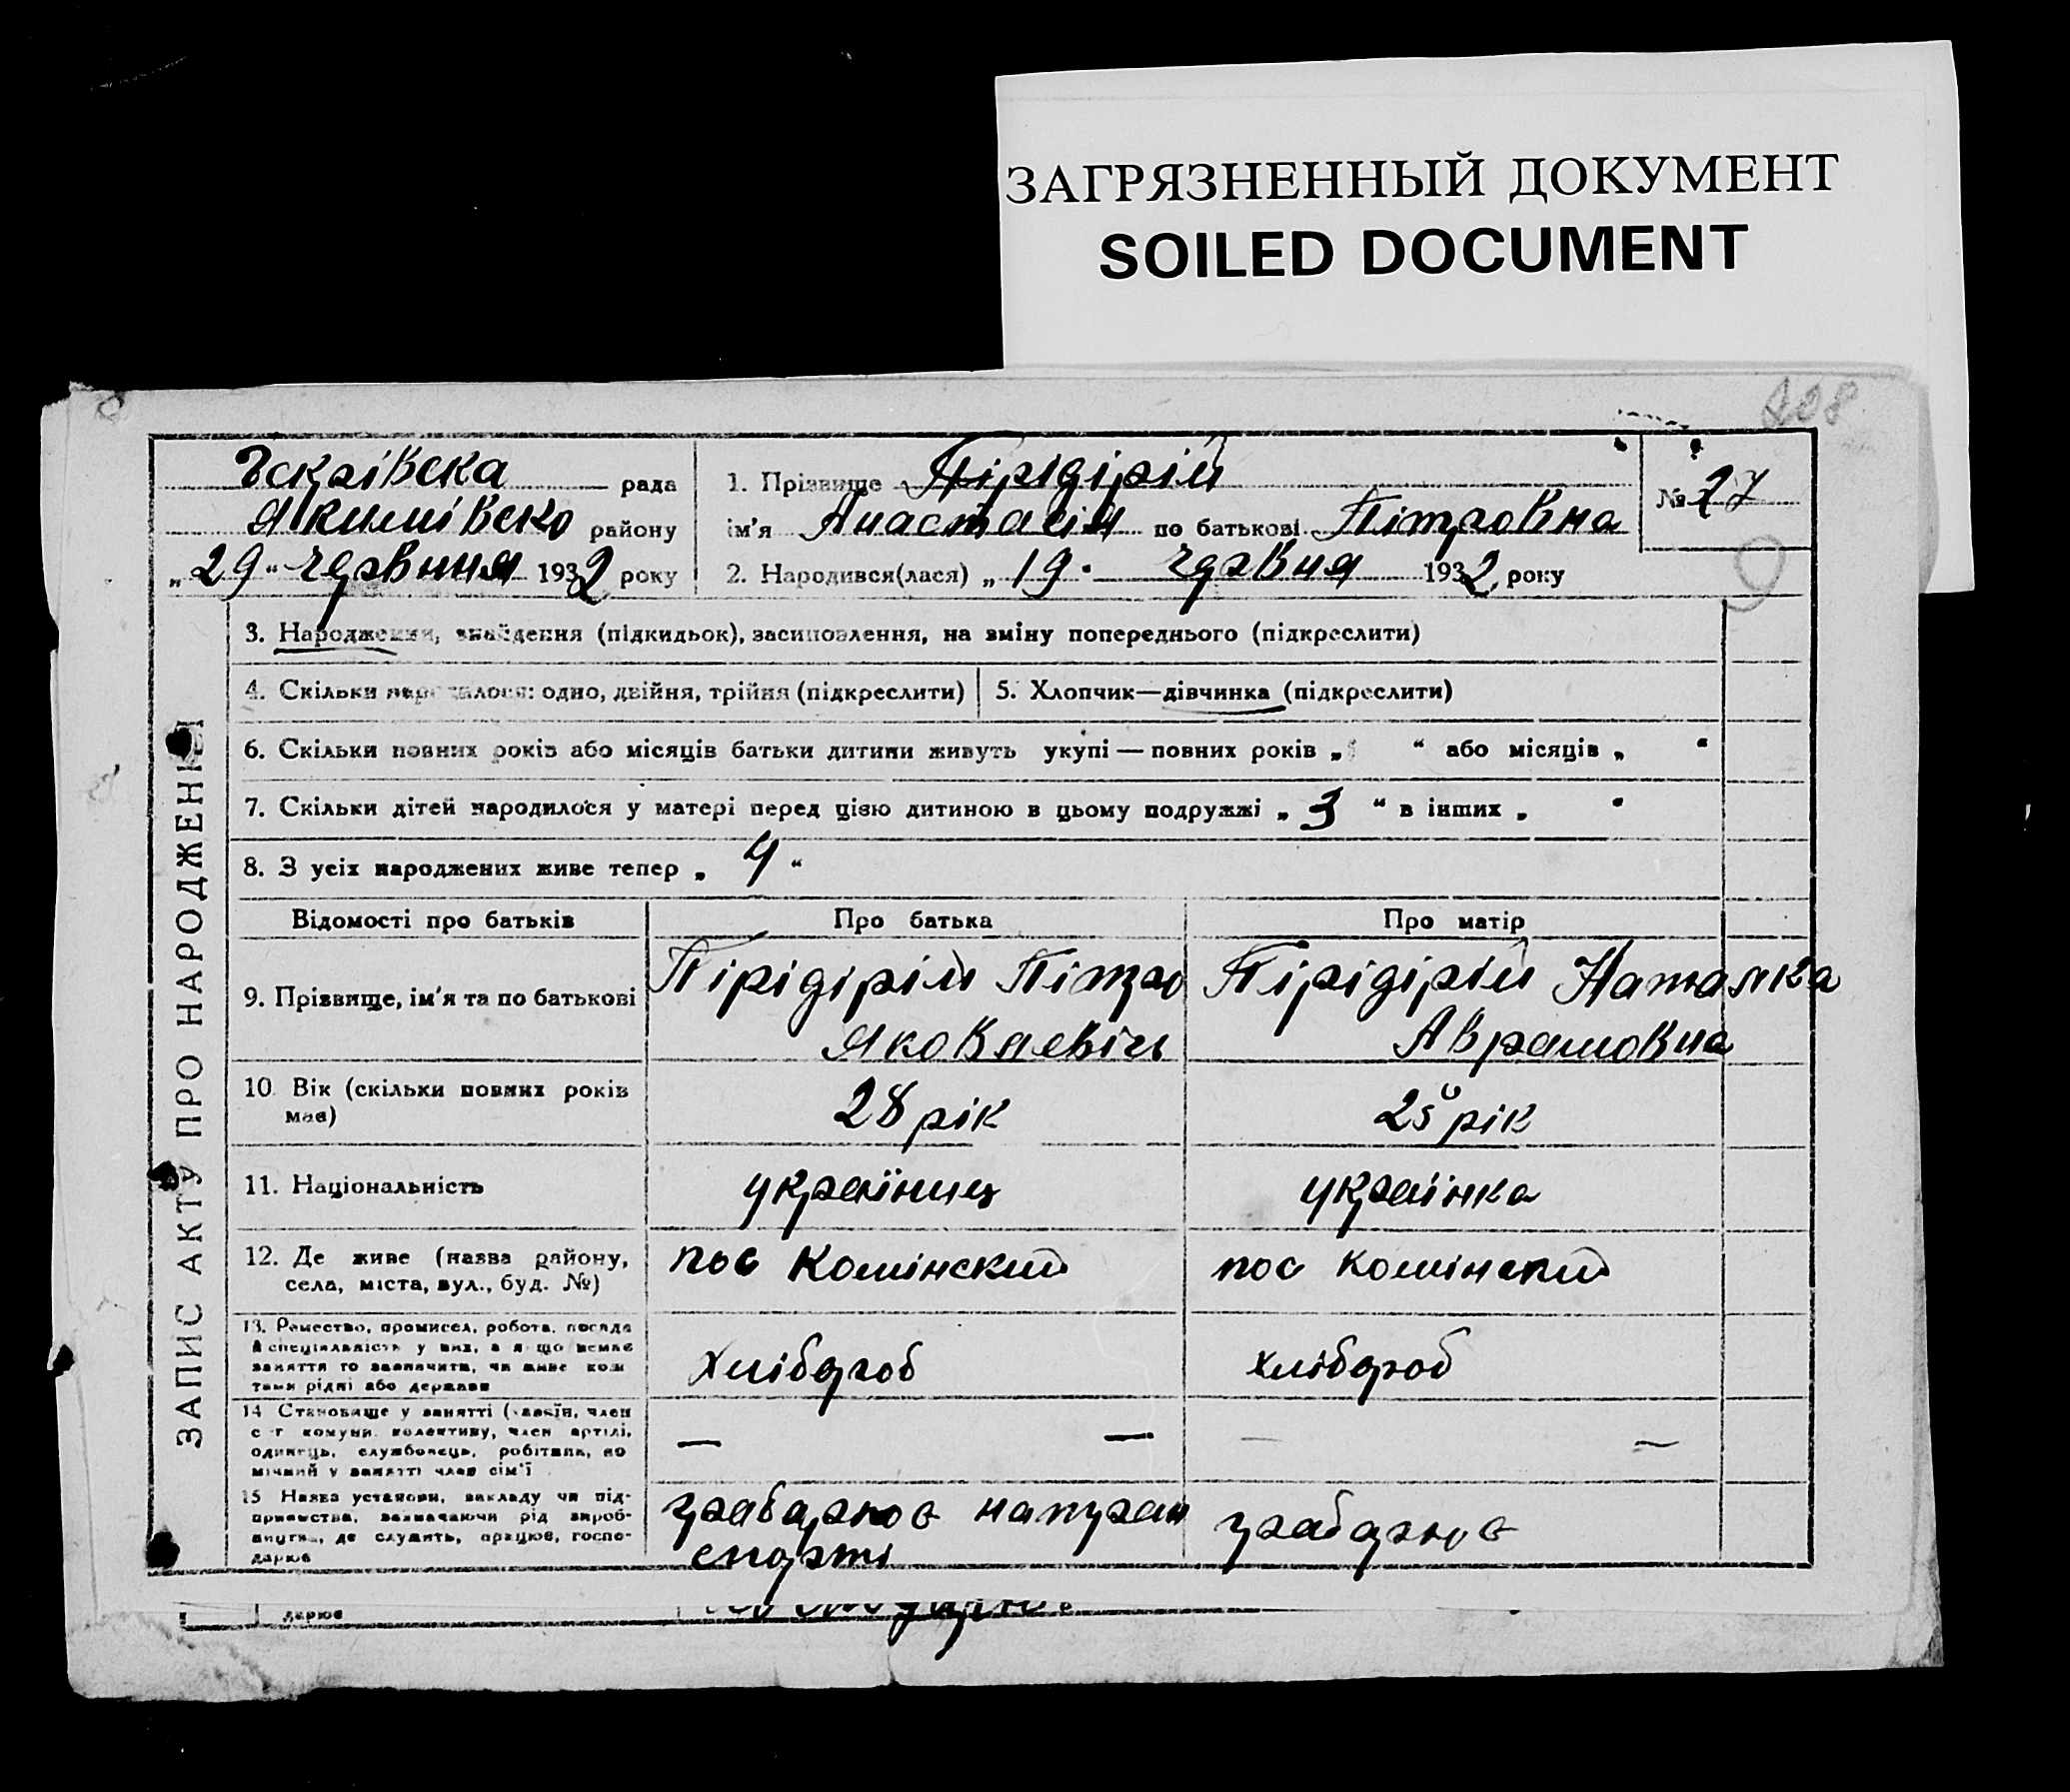 ЗАГРЯЗНЕННЫЙ ДОКУМЕНТ
SOILED DOCUMENT
рада
Якимівсько району
„29“ червиня 1932 року
1. Прізвище Пірідірій
ім'я Анастасія по батькові Пітровна
2. Народився(лася) „19 червня 1932 року
№ 27
ЗАПИС АКТУ ПРО НАРОДЖЕННЯ
3. Народження, знайдення (підкидьок), засиновлення, на зміну попереднього (підкреслити)
4. Скільки народилося: одно, двійня, трійня (підкреслити)
5. Хлопчик—дівчинка (підкреслити)
6. Скільки повних років або місяців батьки дитини живуть укупі — повних років „ “ або місяців „ “
7. Скільки дітей народилося у матері перед цією дитиною в цьому подружжі „ 3 “ в інших „ “
8. З усіх народжених живе тепер „ 4 “
Відомості про батьків
Про батька
Про матір
9. Прізвище, ім'я та по батькові
Пірідірій Пітро
Яковлевіч
Пірідірій Наталка
Аврамовна
10. Вік (скільки повних років
має)
28 рік
25 рік
11. Національність
україниц
українка
12. Де живе (назва району,
села, міста, вул., буд. №)
пос Комінский
пос Комінский
13. Ремество, промисел, робота, посада
й спеціяльність у них, а якщо немає
заняття то зазначити, чи живе кош
тами рідні або держави
хлібороб
хлібороб
14 Становище у занятті (хазяїн, член
с-г комуни, колективу, член артілі,
одинець, службовець, робітник, по
мічний у занятті член сім'ї
— —
— —
15 Назва установи, закладу чи під-
приємства, зазначаючи рід вироб-
ництва, де служить, працює, госпо-
дарює
дарює